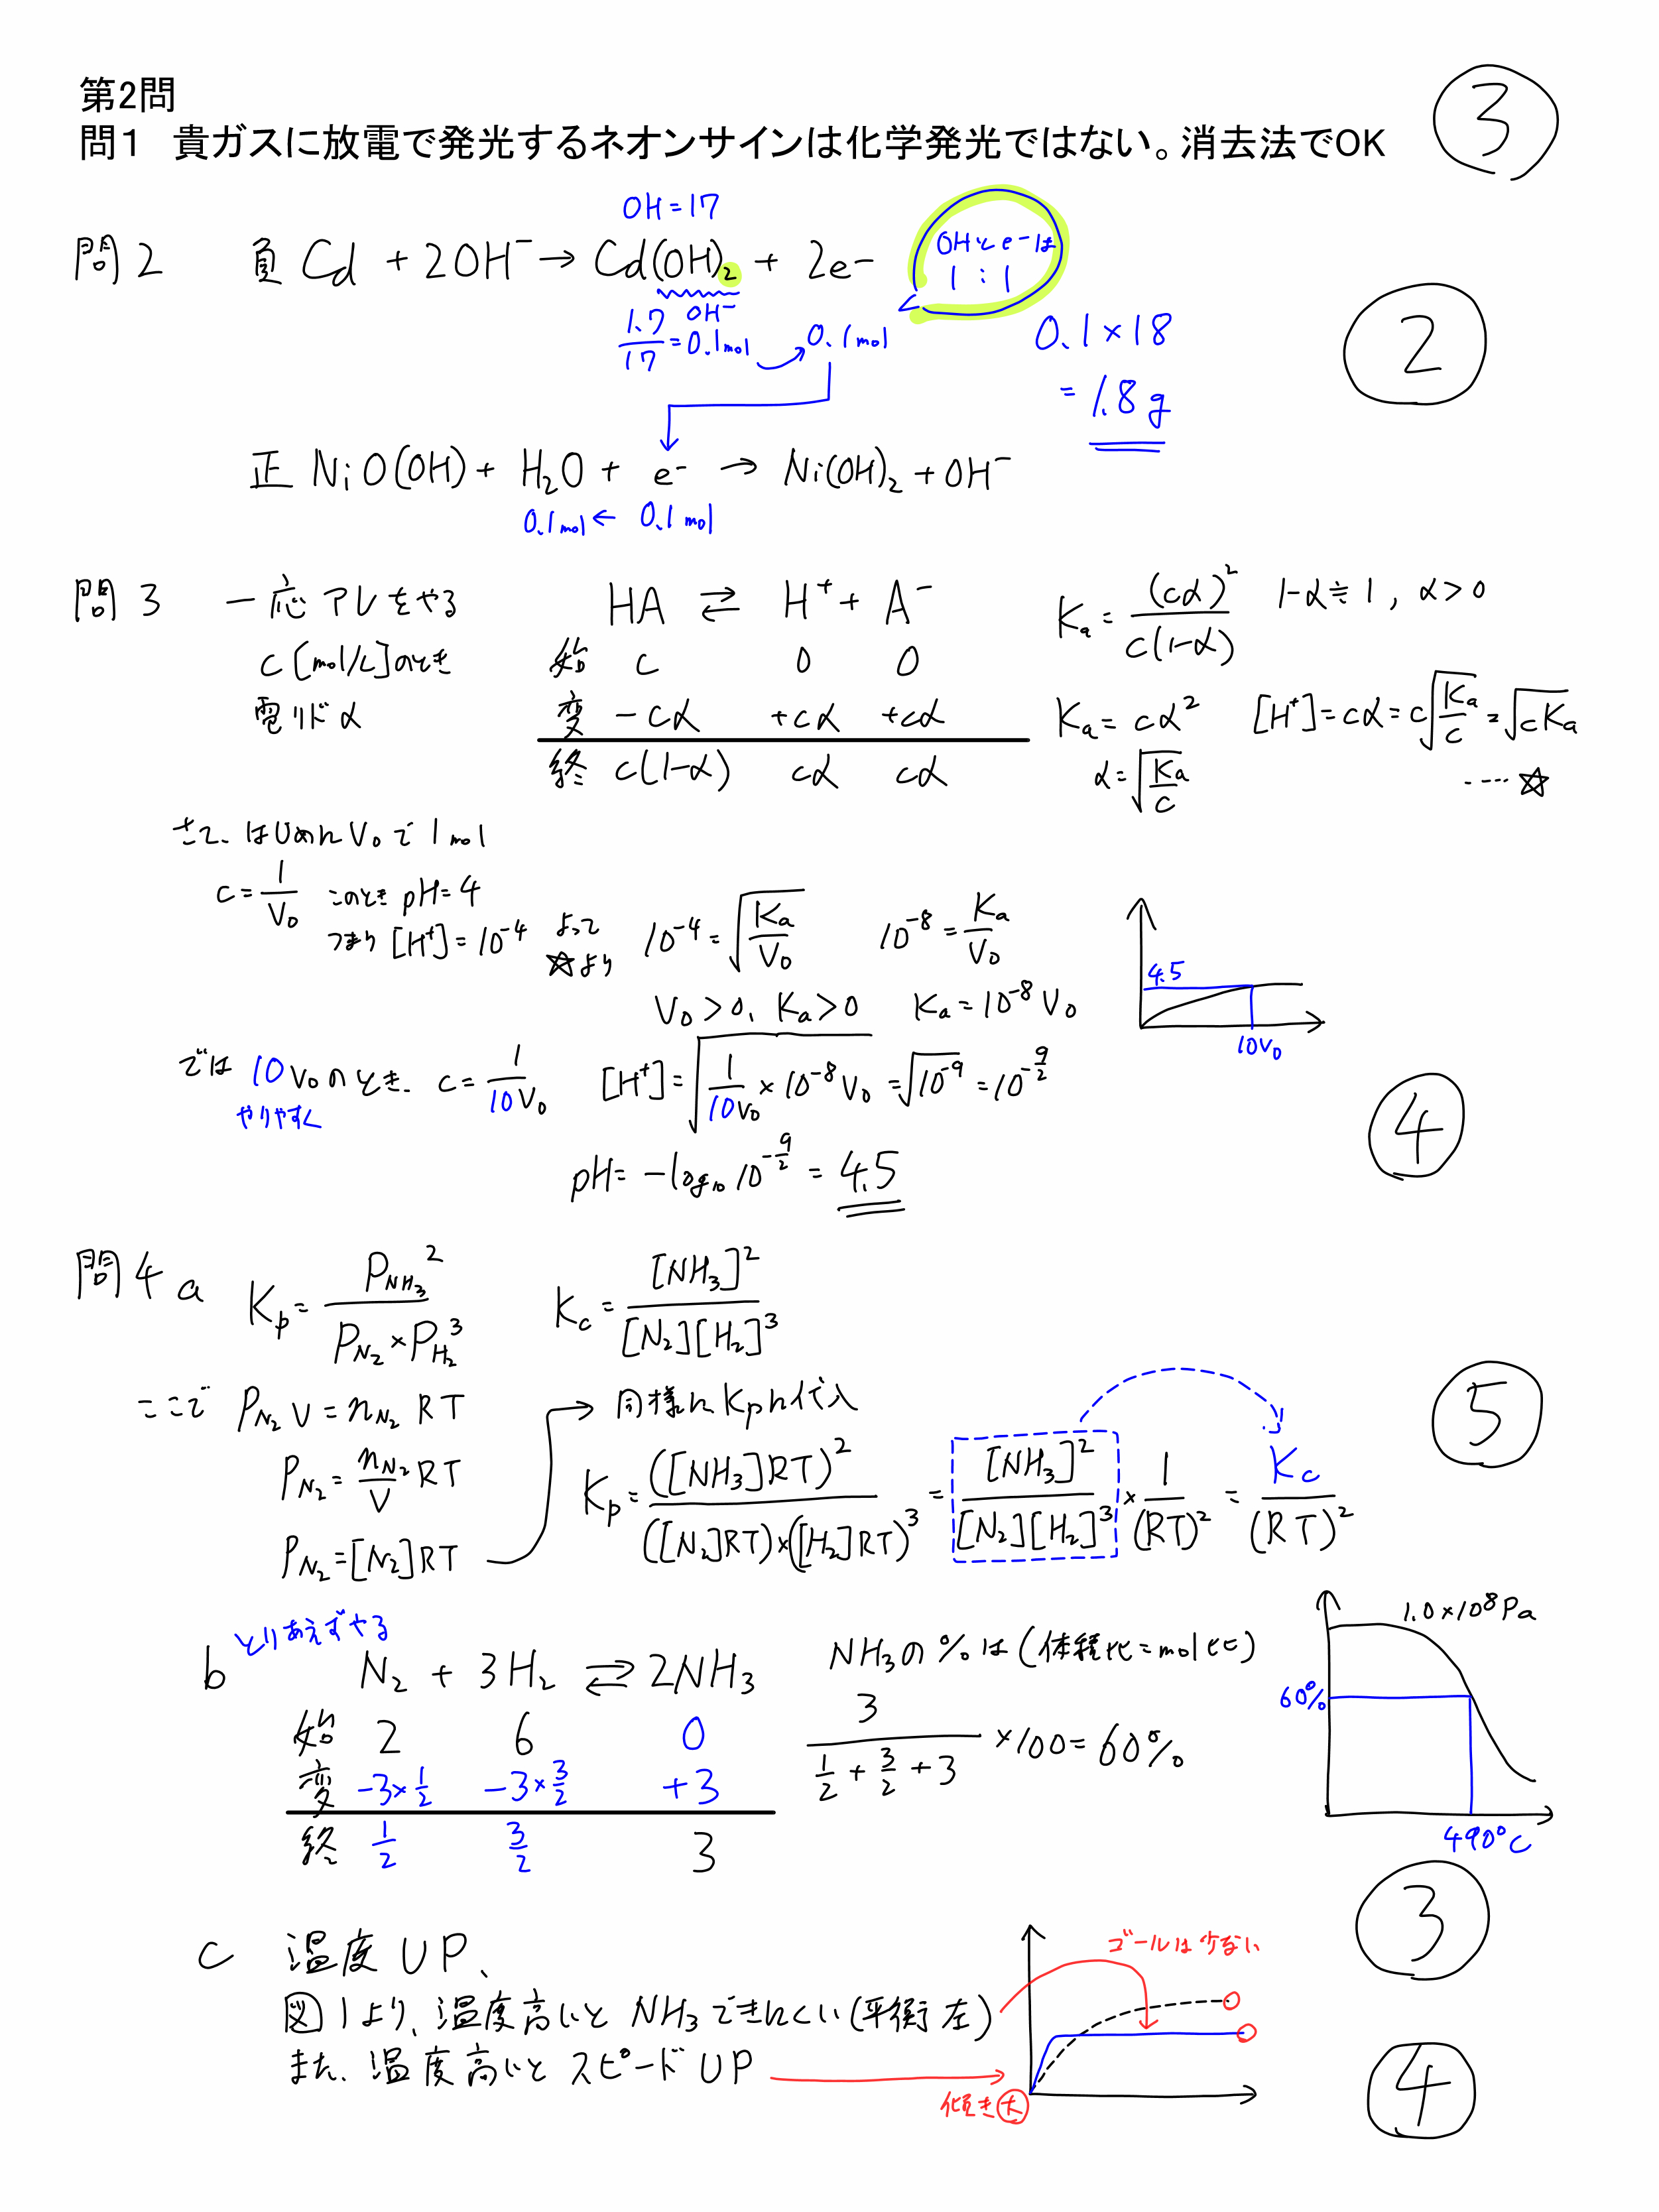 第2問
問1 貴ガスに放電で発光するネオンサインは化学発光ではない。消去法でOK ③
OH=17
問2 負 Cd + 2OH⁻ → Cd(OH)₂ + 2e⁻
OHとe⁻は
1:1
1.7/17 = 0.1mol OH⁻
0.1mol
0.1×18
= 1.8g
②
正 NiO(OH) + H₂O + e⁻ → Ni(OH)₂ + OH⁻
0.1mol ← 0.1mol
問3 一応アレをやる
c[mol/L]のとき
電リド α
HA ⇄ H⁺ + A⁻
始 c 0 0
変 -cα +cα +cα
終 c(1-α) cα cα
Ka = (cα)²/c(1-α) 1-α≒1, α>0
Ka = cα² [H⁺] = cα = c√(Ka/c) = √cKa
α = √(Ka/c) ‥‥☆
さて、はじめにV₀で1mol
c = 1/V₀ このとき pH=4
つまり [H⁺] = 10⁻⁴ よって
☆より
10⁻⁴ = √(Ka/V₀) 10⁻⁸ = Ka/V₀
V₀>0, Ka>0 Ka = 10⁻⁸V₀
4.5
10V₀
では 10V₀のとき、c = 1/10V₀ [H⁺] = √(1/10V₀ × 10⁻⁸V₀) = √10⁻⁹ = 10^(-9/2)
やりやすく
④
pH = -log₁₀10^(-9/2) = 4.5
問4 a Kp = P_NH₃²/P_N₂×P_H₂³ Kc = [NH₃]²/[N₂][H₂]³
ここで P_N₂V = n_N₂RT
P_N₂ = n_N₂/V RT
P_N₂ = [N₂]RT
同様にKpに代入
Kp = ([NH₃]RT)²/([N₂]RT)×([H₂]RT)³ = [NH₃]²/[N₂][H₂]³ × 1/(RT)² = Kc/(RT)²
⑤
b とりあえずやる
N₂ + 3H₂ ⇄ 2NH₃
始 2 6 0
変 -3×1/2 -3×3/2 +3
終 1/2 3/2 3
NH₃の%は(体積比=mol比)
3/(1/2+3/2+3) ×100 = 60%
1.0×10⁸Pa
60%
490°C
③
c 温度UP、
図1より、温度高いとNH₃できにくい(平衡左)
また、温度高いとスピードUP
ゴールは少ない
傾き大
④